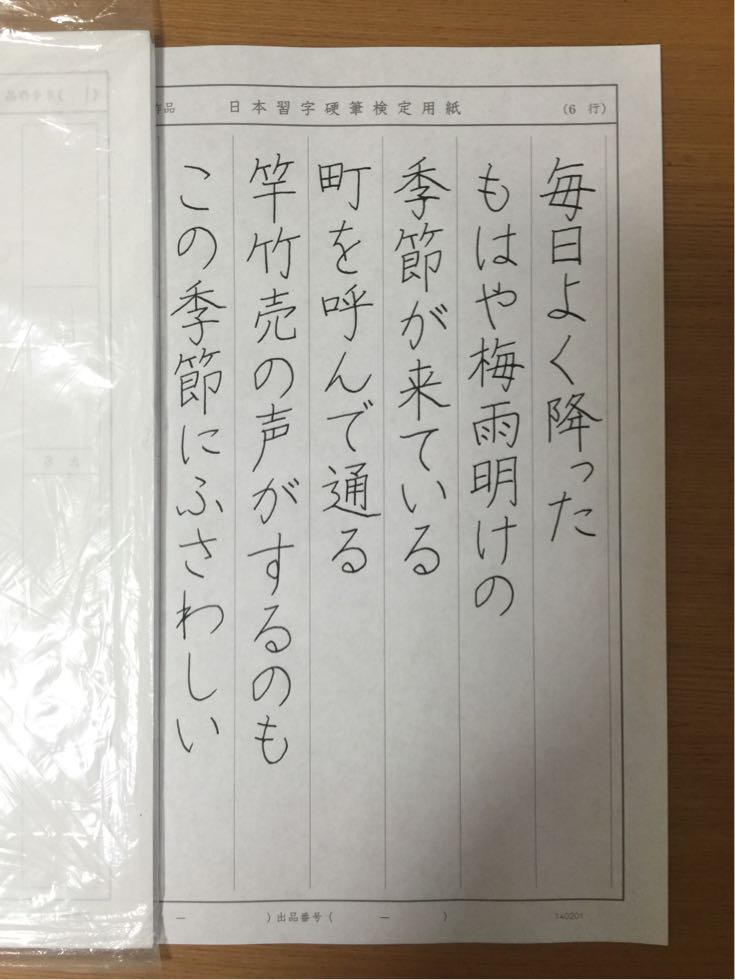 作品　日本習字硬筆検定用紙　(6 行)
毎日よく降った
もはや梅雨明けの
季節が来ている
町を呼んで通る
竿竹売の声がするのも
この季節にふさわしい
― ) 出品番号 ( ― )
140201